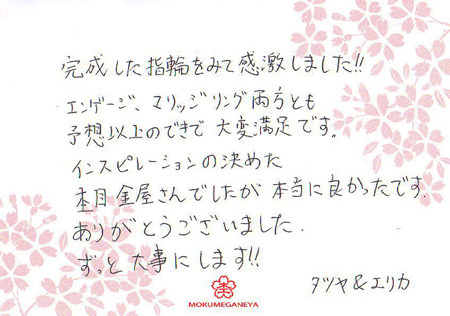 完成した指輪をみて感激しました!!
エンゲージ、マリッジリング両方とも
予想以上のできで大変満足です。
インスピレーションの決めた
杢目金屋さんでしたが本当に良かったです.
ありがとうございました.
ずっと大事にします!!
タツヤ&エリカ
杢
MOKUMEGANEYA